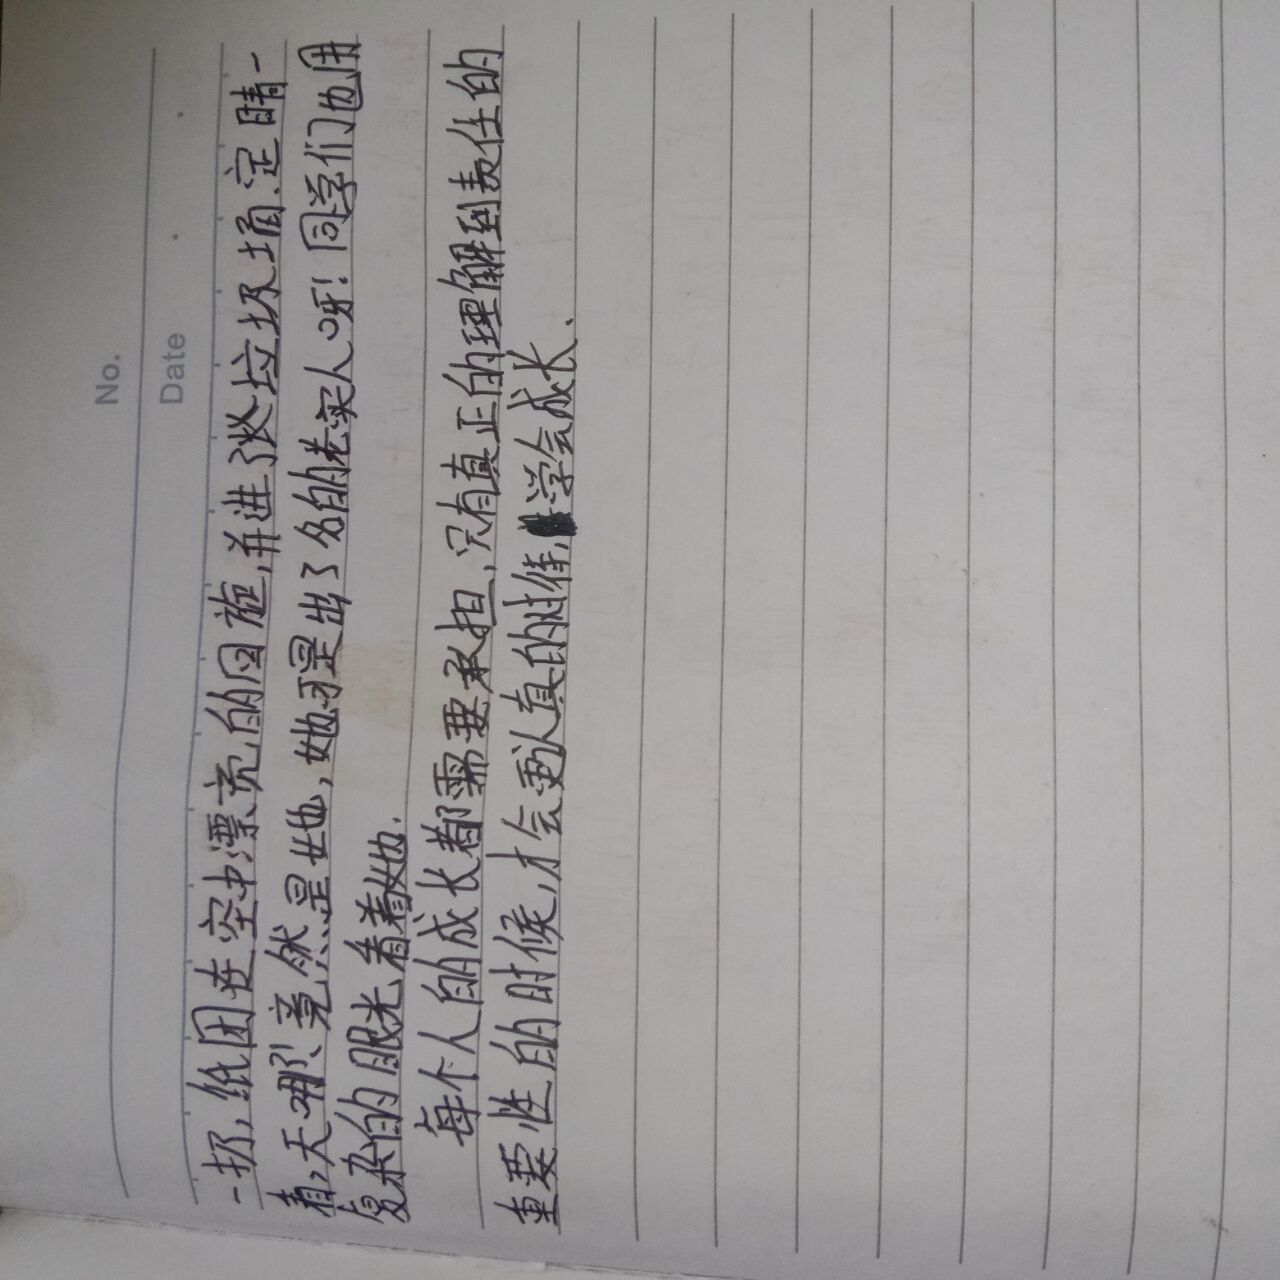 No.
Date
一扔，纸团在空中漂亮的回旋，并进了张垃圾埇、定睛一
看，天哪！竟然是她，她可是出了名的老实人呀！同学们也用
复杂的眼光看着她.
每个人的成长都需要承担，只有真正的理解到责任的
重要性的时候，才会更认真的对待，学会成长.